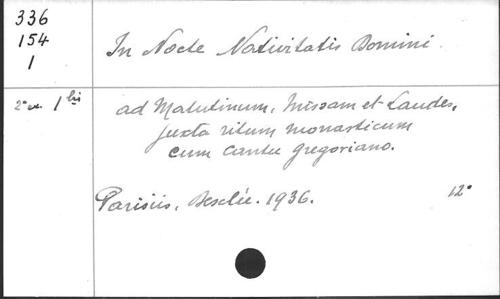 336
154
1
In Nocte Nativitatis Domini.
2° ex. 1 bis
ad Matutinum, Missam et Laudes,
juxta ritum monasticum
cum cantu gregoriano.
Parisiis, Desclée. 1936.
12°